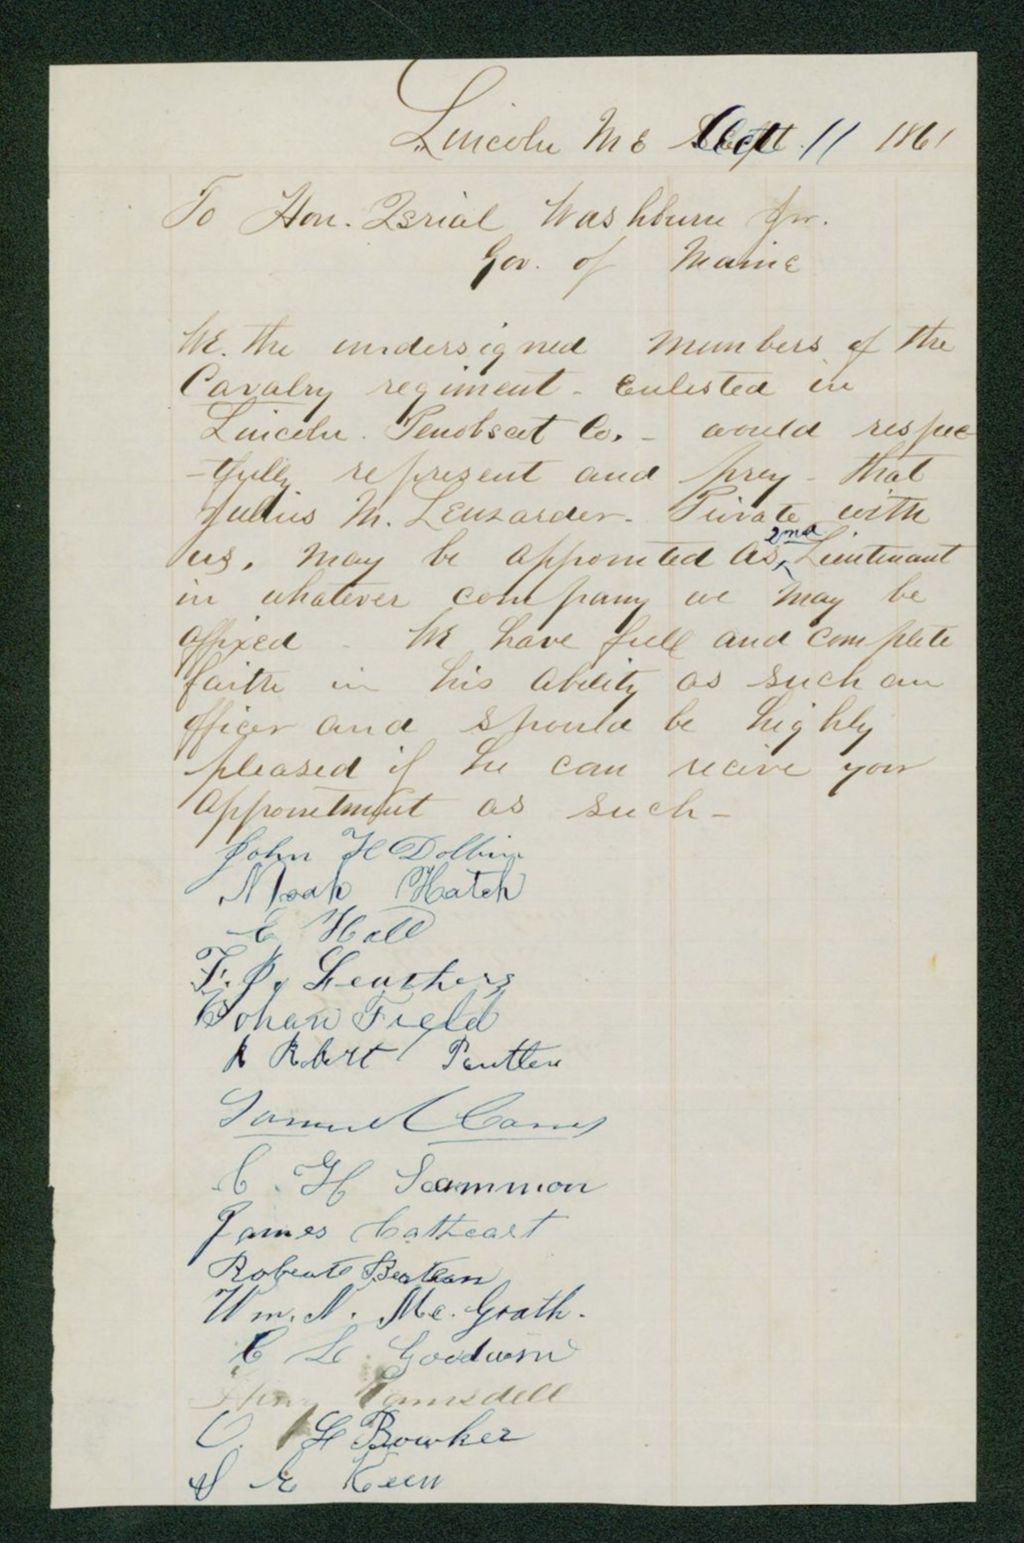 Lincoln ME Oct. 11 1861
To Hon. Isrial Washburn Jr.
Gov. of Maine
We. the undersigned members of the
Cavalry regiment - Enlisted in
Lincoln. Penobscot Co. - would respec
-tfully represent and prey - that
Julius M. Leuzarder - Private with
us, may be appointed as 2nd Lieutenant
in whatever company we may be
affixed - We have full and complete
faith in his ability as such an
officer and should be highly
pleased if he can recive your
appointment as such -
John H Dolbin
Noah Hatch
E Hall
F. P. Leathers
Johan Field
R Robert
Samuel
C. H Scammon
James Cathcart
Robert
Wm. N. Mc. Grath.
C L. Goodwin
Ramsdell
O. H Bowker
S E Keen